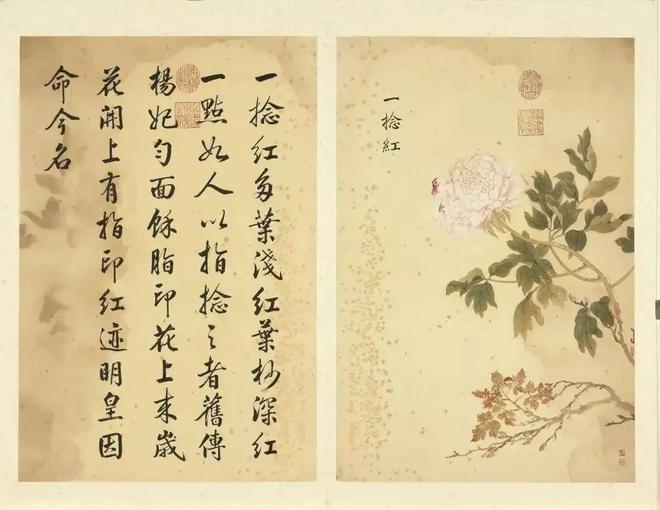 一捻紅
一捻红多葉淺红葉杪深红
一點如人以指捻之者舊傳
楊妃匀面餘脂印花上来歳
花開上有指印红迹明皇因
命今名